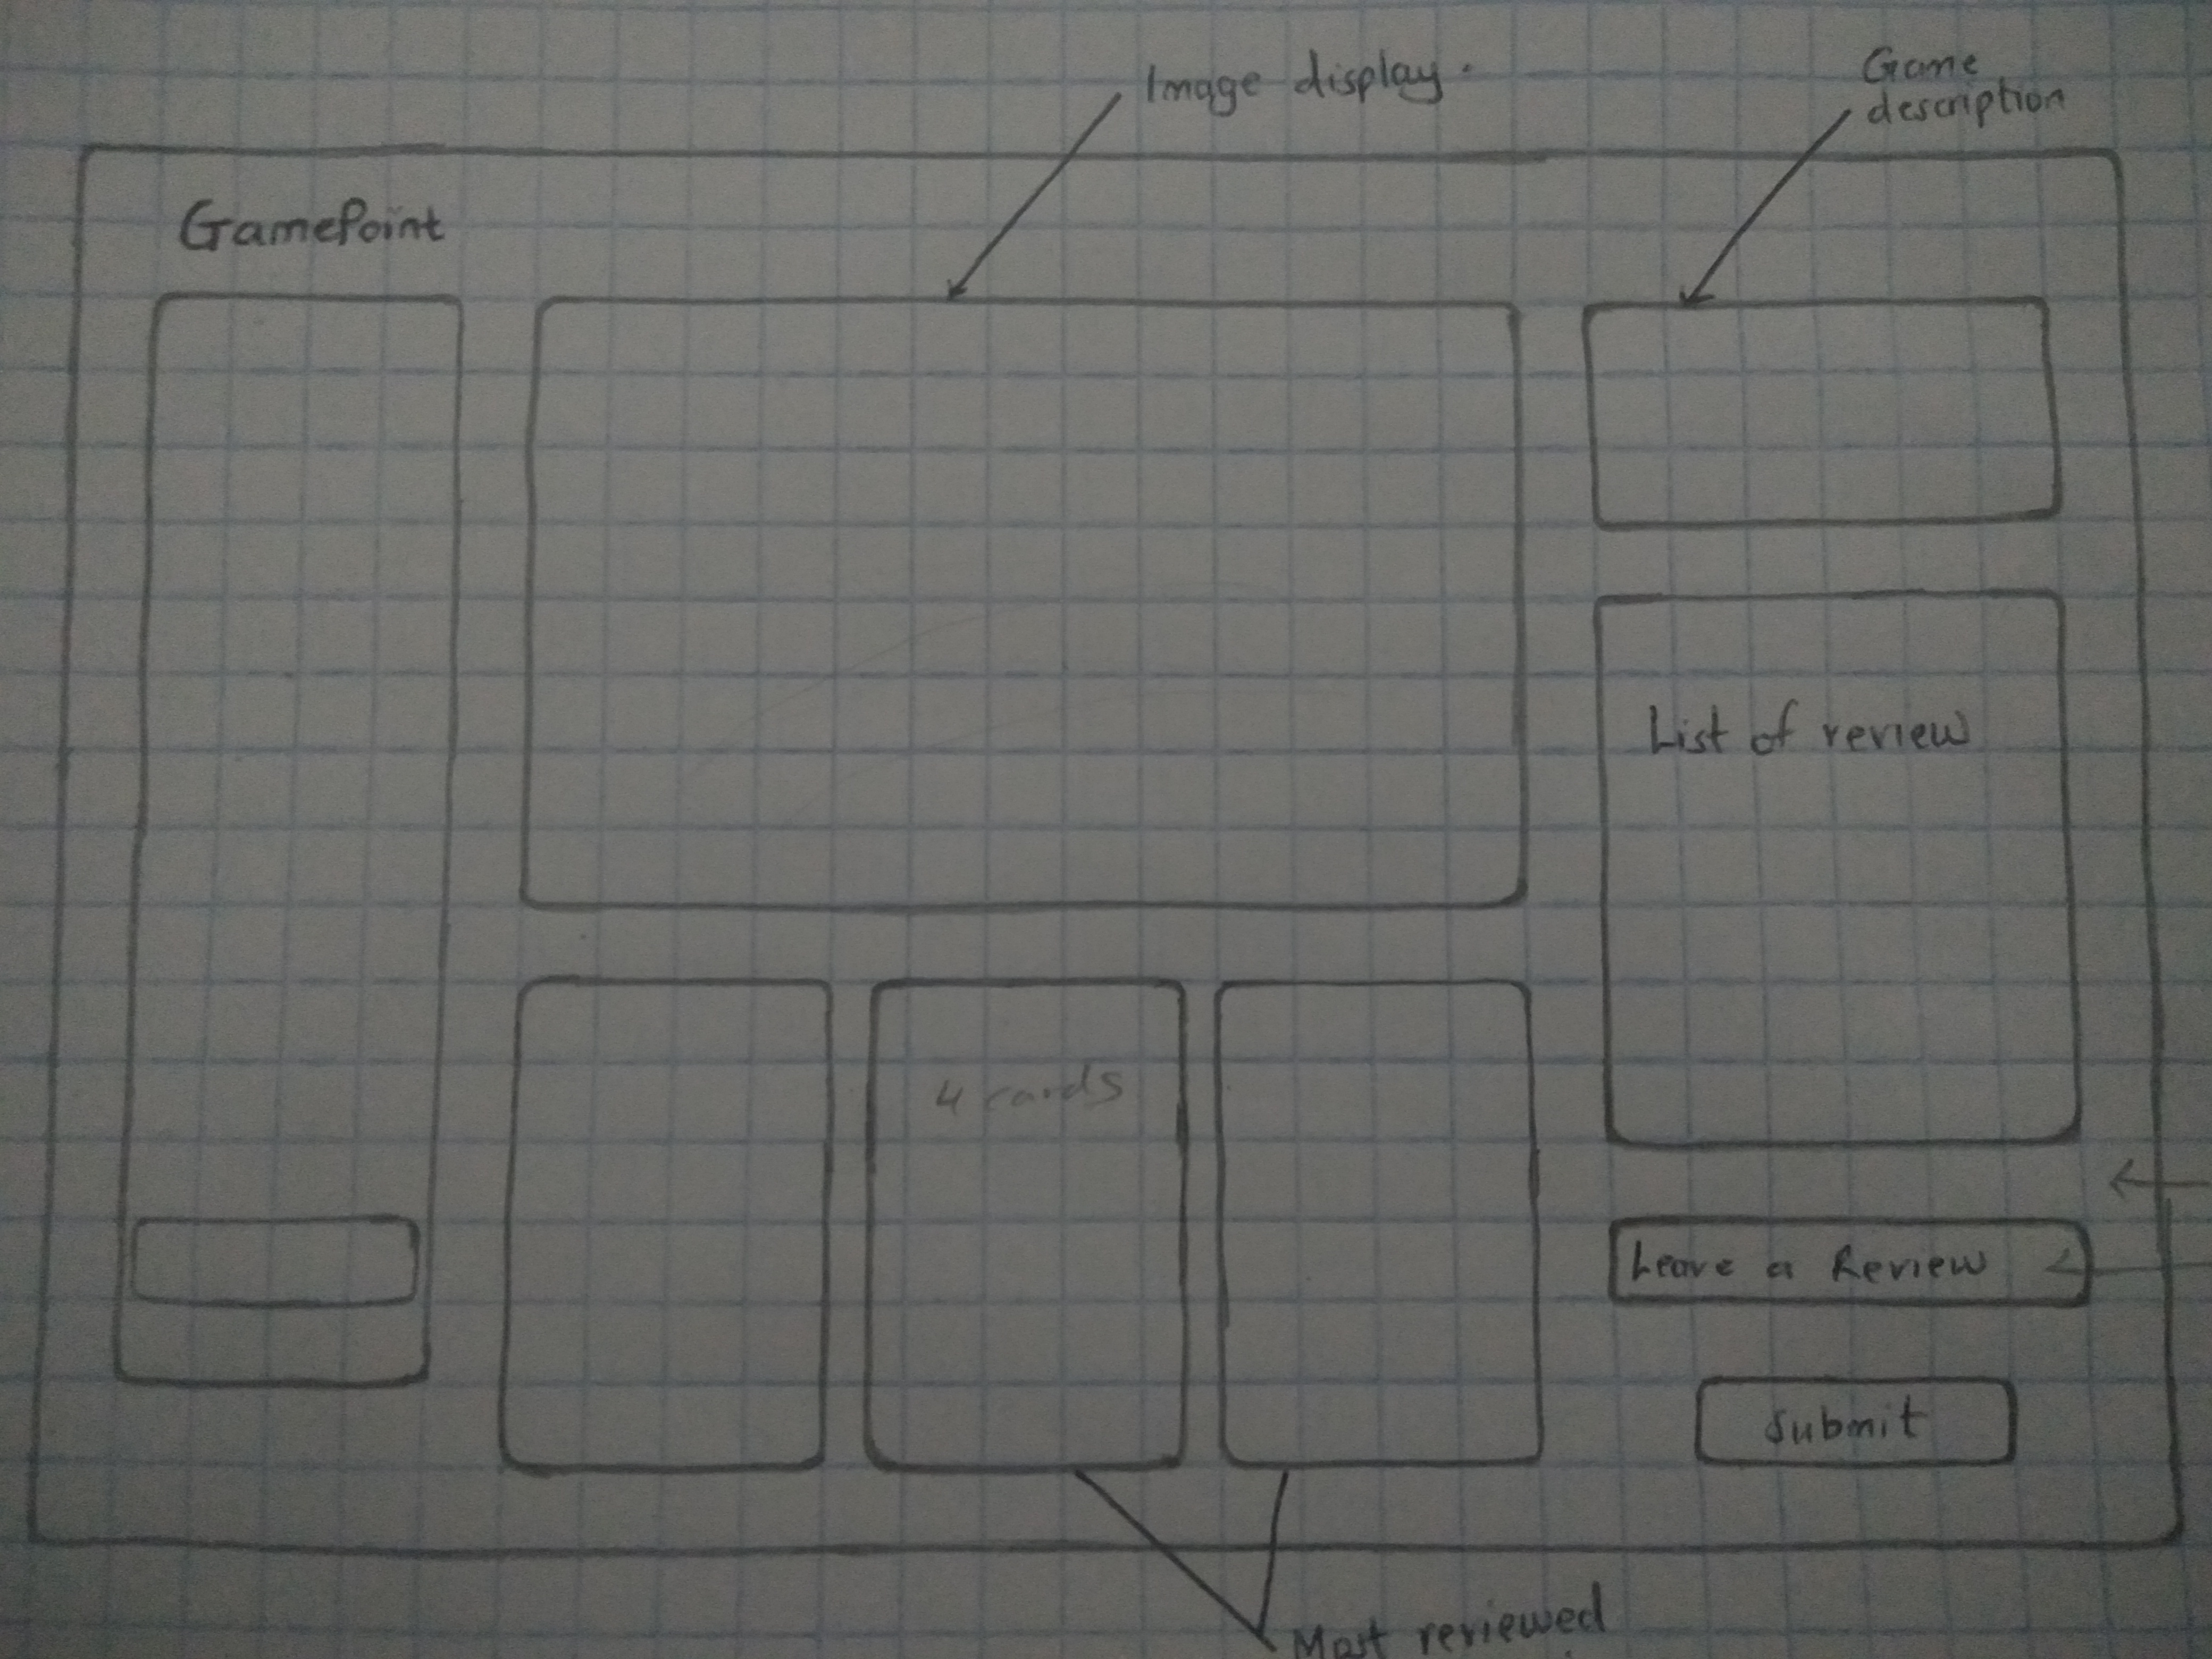 Image display.
Game
description
GamePoint
List of review
4 cards
Leave a Review
Submit
Most reviewed